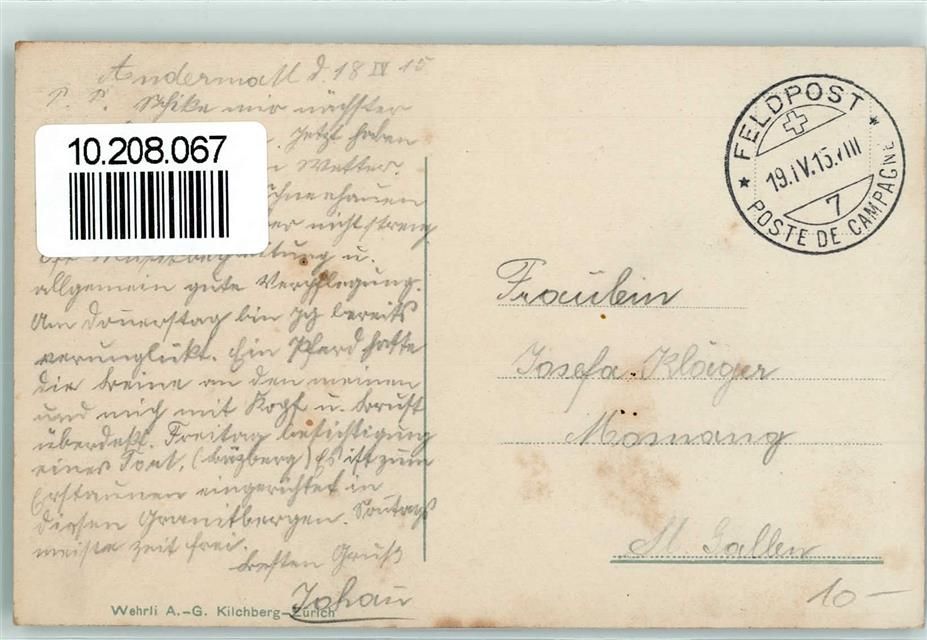 Andermatt d. 18 IV 15
P. P. Schike mir nächster
jetzt haben
Wetter.
Schneehauen
nicht streng
u.
allgemein gute Verpflegung.
Am Donnerstag bin ich bereits
verunglükt. Ein Pferd hatte
die Beine an den meinen
und mich mit Kopf u. Brust
überdekt. Freitag besichtigung
eines Fort, (Bäzberg) Es ist zum
Erstaunen eingerichtet in
diesen Granitbergen. Sontags
meiste zeit frei.
besten Gruß
Johan
Wehrli A.-G. Kilchberg-Zürich
10.208.067
FELDPOST
19.IV.15.VIII
7
POSTE DE CAMPAGNE
Fräulein
Josefa Kläger
Mosnang
St. Gallen
10 –